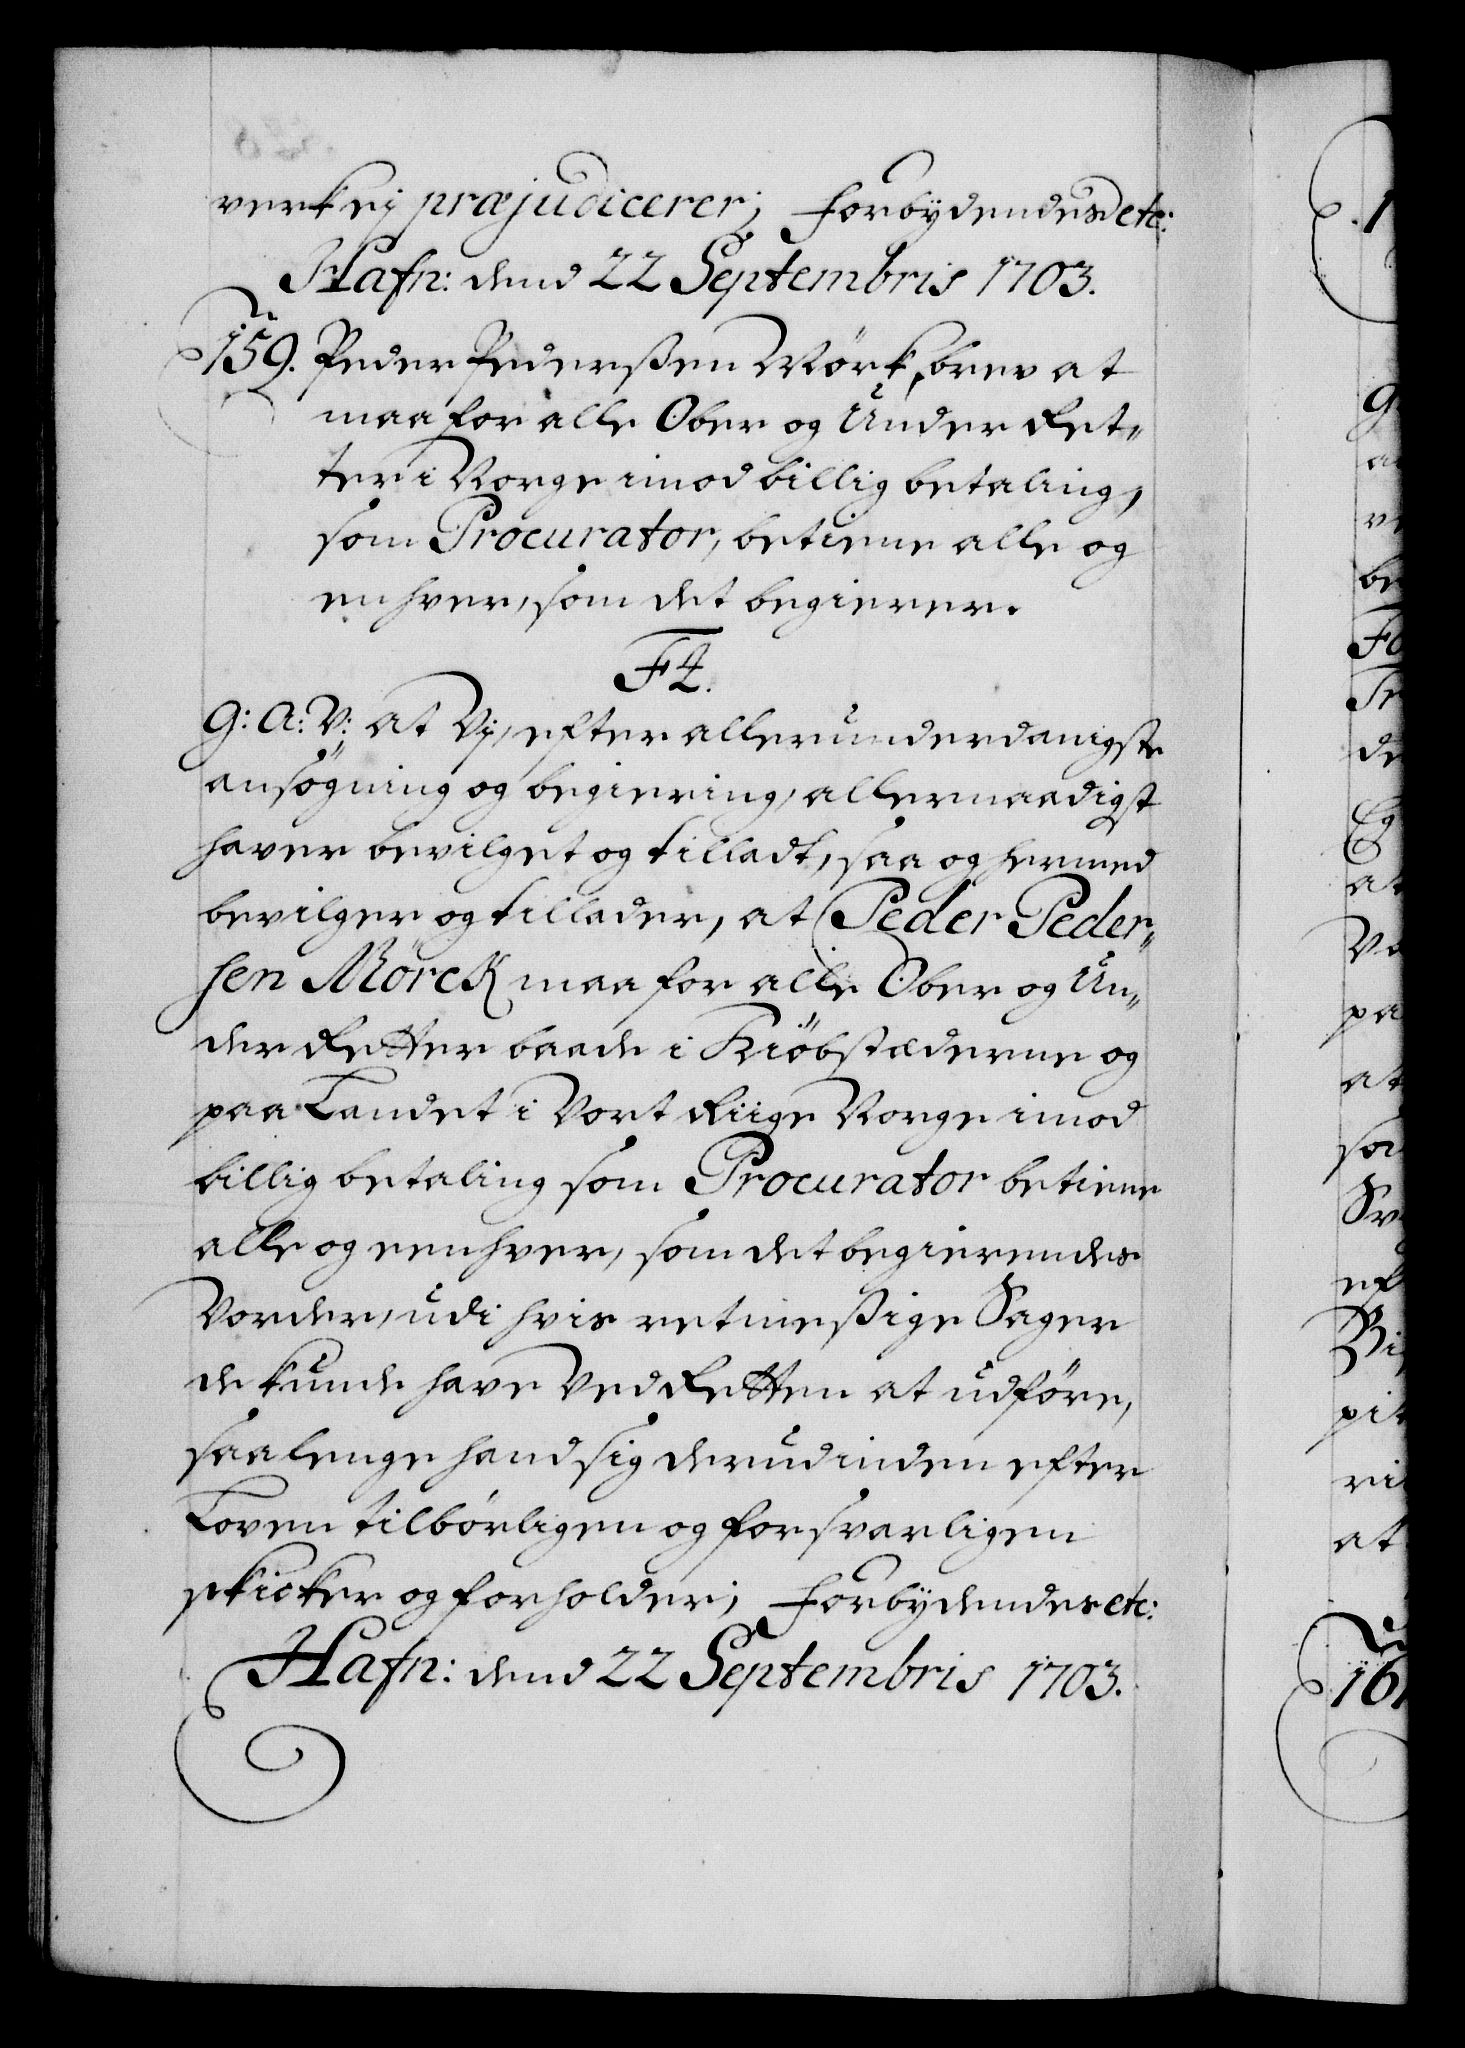 verk ej præjudicerer; Forbydendes etc:
Hafn: dend 22 Septembris 1703.
159. Peder Pederßen Mörk, brev at
maa for alle Ober og Under Ret„
ter i Norge imod billig betaling,
som Procurator, betiene alle og
enhver, som det begierer.
F4.
G: A: V: at Vj, efter allerunderdanigste
ansögning og begiering, allernaadigst
haver bevilget og tilladt, saa og hermed
bevilger og tillader, at Peder Peder„
sen Mörck maa for alle Ober og Un„
der Retter baade i Kiöbstæderne og
paa Landet i Vort Riige Norge imod
billig betaling som Procurator betiene
alle og eenhver, som det begierendes
Vorder, udi hvis retmeßige Sager
de kunde have Ved Retten at udföre,
saalenge hand sig derudinden efter
Loven tilbörligen og forsvarligen
skicker og forholder; Forbydendes etc:
Hafn: dend 22 Septembris 1703.